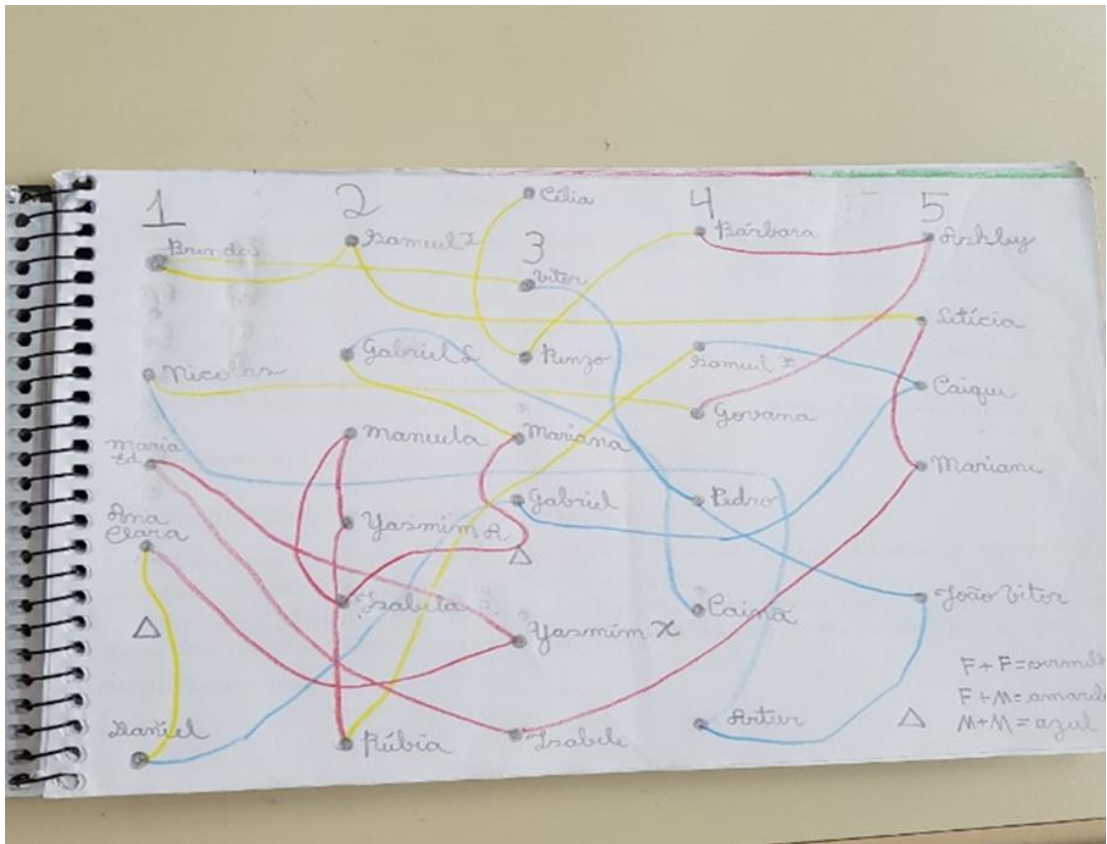 1
Brenda
Nicolas
Maria
Ed.
Ana
Clara
Daniel
2
Samuel I
Gabriel L
Manuela
Yasmim A
Isabela
Rúbia
Célia
3
Vitor
Renzo
Mariana
Gabriel
Yasmim X
Isabele
4
Bárbara
Samuel F
Govana
Pedro
Cainã
Artur
5
Ashley
Letícia
Caique
Mariane
João Vitor
F + F = vermelh
F + M = amarelo
M + M = azul